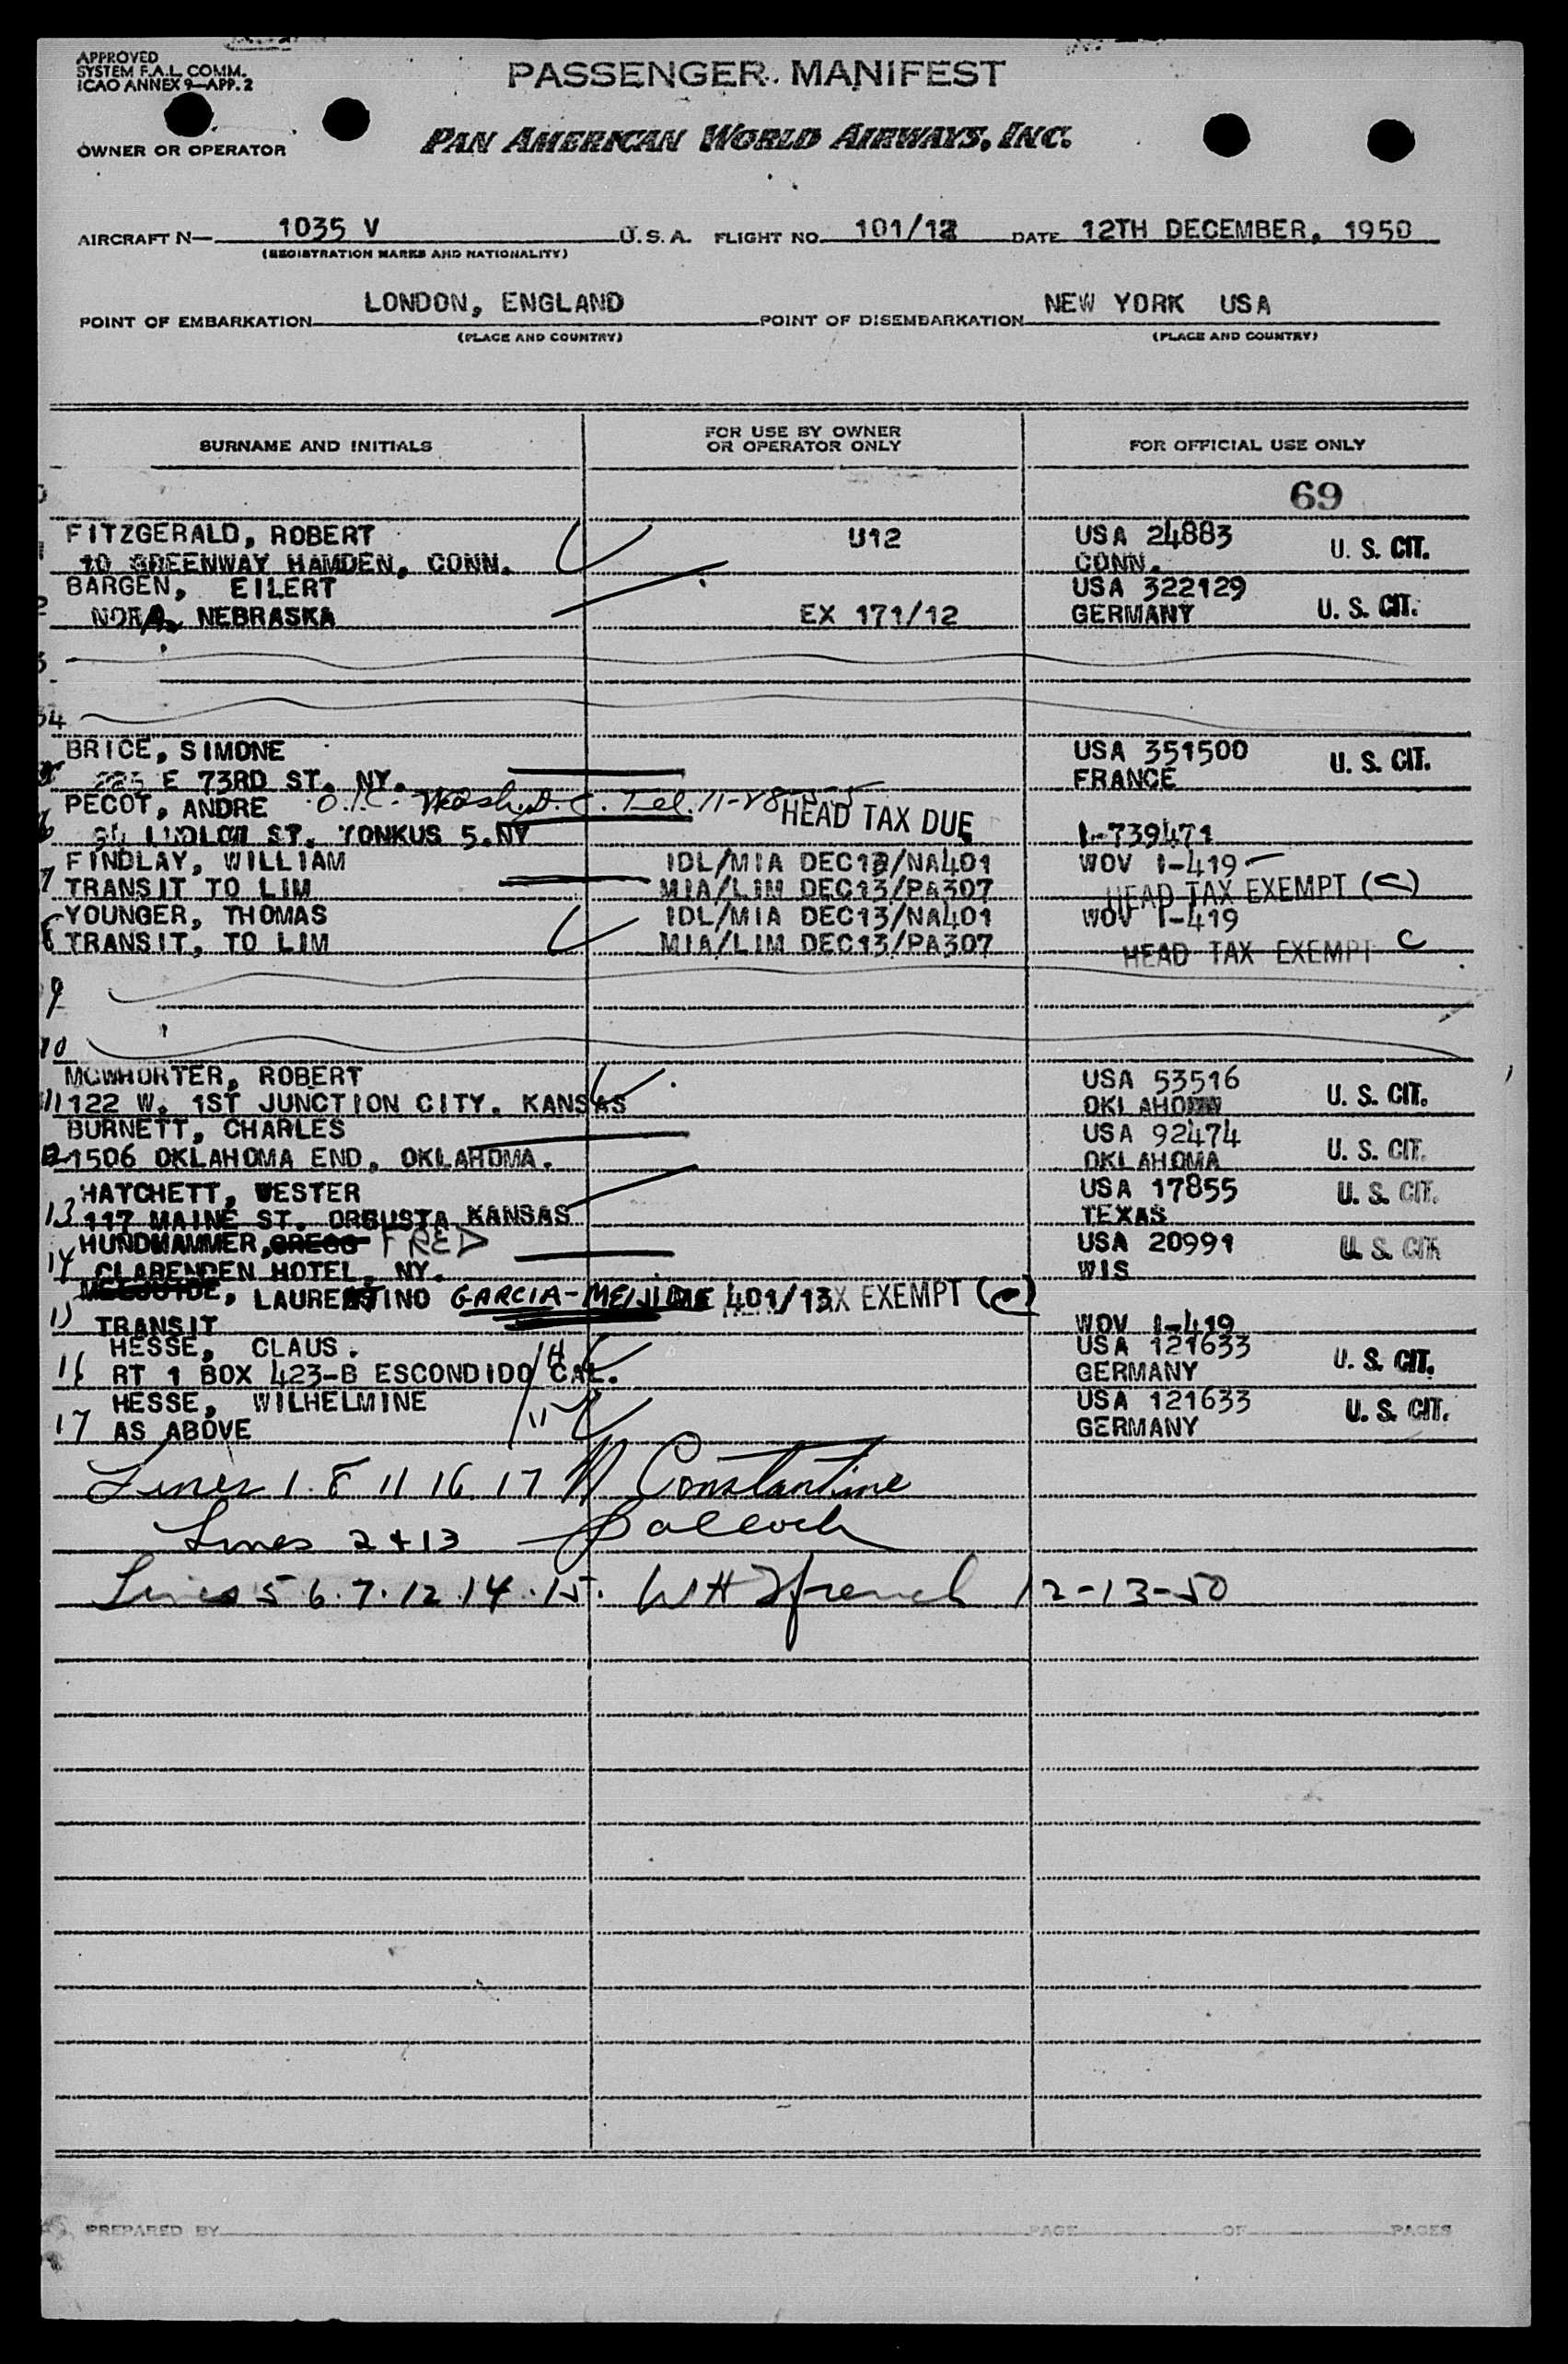 APPROVED
SYSTEM F.A.L. COMM.
ICAO ANNEX 9—APP. 2
PASSENGER MANIFEST
OWNER OR OPERATOR
PAN AMERICAN WORLD AIRWAYS, INC.
AIRCRAFT N— 1035 V U.S.A. FLIGHT NO. 101/12 DATE 12TH DECEMBER, 1950
(REGISTRATION MARKS AND NATIONALITY)
POINT OF EMBARKATION LONDON, ENGLAND POINT OF DISEMBARKATION NEW YORK USA
(PLACE AND COUNTRY) (PLACE AND COUNTRY)
SURNAME AND INITIALS FOR USE BY OWNER OR OPERATOR ONLY FOR OFFICIAL USE ONLY
69
FITZGERALD, ROBERT U12 USA 24883
10 GREENWAY HAMDEN, CONN. CONN. U. S. CIT.
BARGEN, EILERT USA 322129
2 NORA, NEBRASKA EX 171/12 GERMANY U. S. CIT.
3
4
BRICE, SIMONE USA 351500
E 73RD ST. NY. FRANCE U. S. CIT.
PECOT, ANDRE O.I.C. Wash. D.C. Tel. 11-28 HEAD TAX DUE
6 ST. YONKUS 5.NY I-739471
FINDLAY, WILLIAM IDL/MIA DEC13/NA401 WOV I-419
7 TRANSIT TO LIM MIA/LIM DEC13/PA307 HEAD TAX EXEMPT (C)
YOUNGER, THOMAS IDL/MIA DEC13/NA401 WOV I-419
8 TRANSIT, TO LIM MIA/LIM DEC13/PA307 HEAD TAX EXEMPT C
9
10
MCWHORTER, ROBERT USA 53516
11 122 W. 1ST JUNCTION CITY. KANSAS OKLAHOMA U. S. CIT.
BURNETT, CHARLES USA 92474
12 1506 OKLAHOMA END, OKLAHOMA. OKLAHOMA U. S. CIT.
HATCHETT, VESTER USA 17855 U. S. CIT.
13 117 MAINE ST. KANSAS TEXAS
HUNDMAMMER, GREGG FRED USA 20991 U. S. CIT
14 CLARENDEN HOTEL, NY. WIS
LAURENTINO GARCIA-MEIJIDE 401/13 TAX EXEMPT (C)
15 TRANSIT WOV I-419
HESSE, CLAUS. USA 121633
16 RT 1 BOX 423-B ESCONDIDO CAL. GERMANY U. S. CIT.
HESSE, WILHELMINE USA 121633
17 AS ABOVE GERMANY U. S. CIT.
Lines 1. 8 11 16. 17 N Constantine
Lines 2 + 13
Lines 5 6. 7. 12. 14. 15. WH French 12-13-50
PREPARED BY PAGE OF PAGES